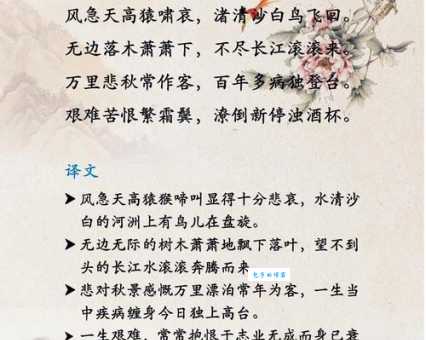 风急天高猿啸哀，渚清沙白鸟飞回。
无边落木萧萧下，不尽长江滚滚来。
万里悲秋常作客，百年多病独登台。
艰难苦恨繁霜鬓，潦倒新停浊酒杯。
译文
➤风急天高猿猴啼叫显得十分悲哀，水清沙
白的河洲上有鸟儿在盘旋。
➤无边无际的树木萧萧地飘下落叶，望不到
头的长江水滚滚奔腾而来
➤悲对秋景感慨万里漂泊常年为客，一生当
中疾病缠身今日独上高台。
➤一生艰难，常常抱恨于志业无成而身已衰